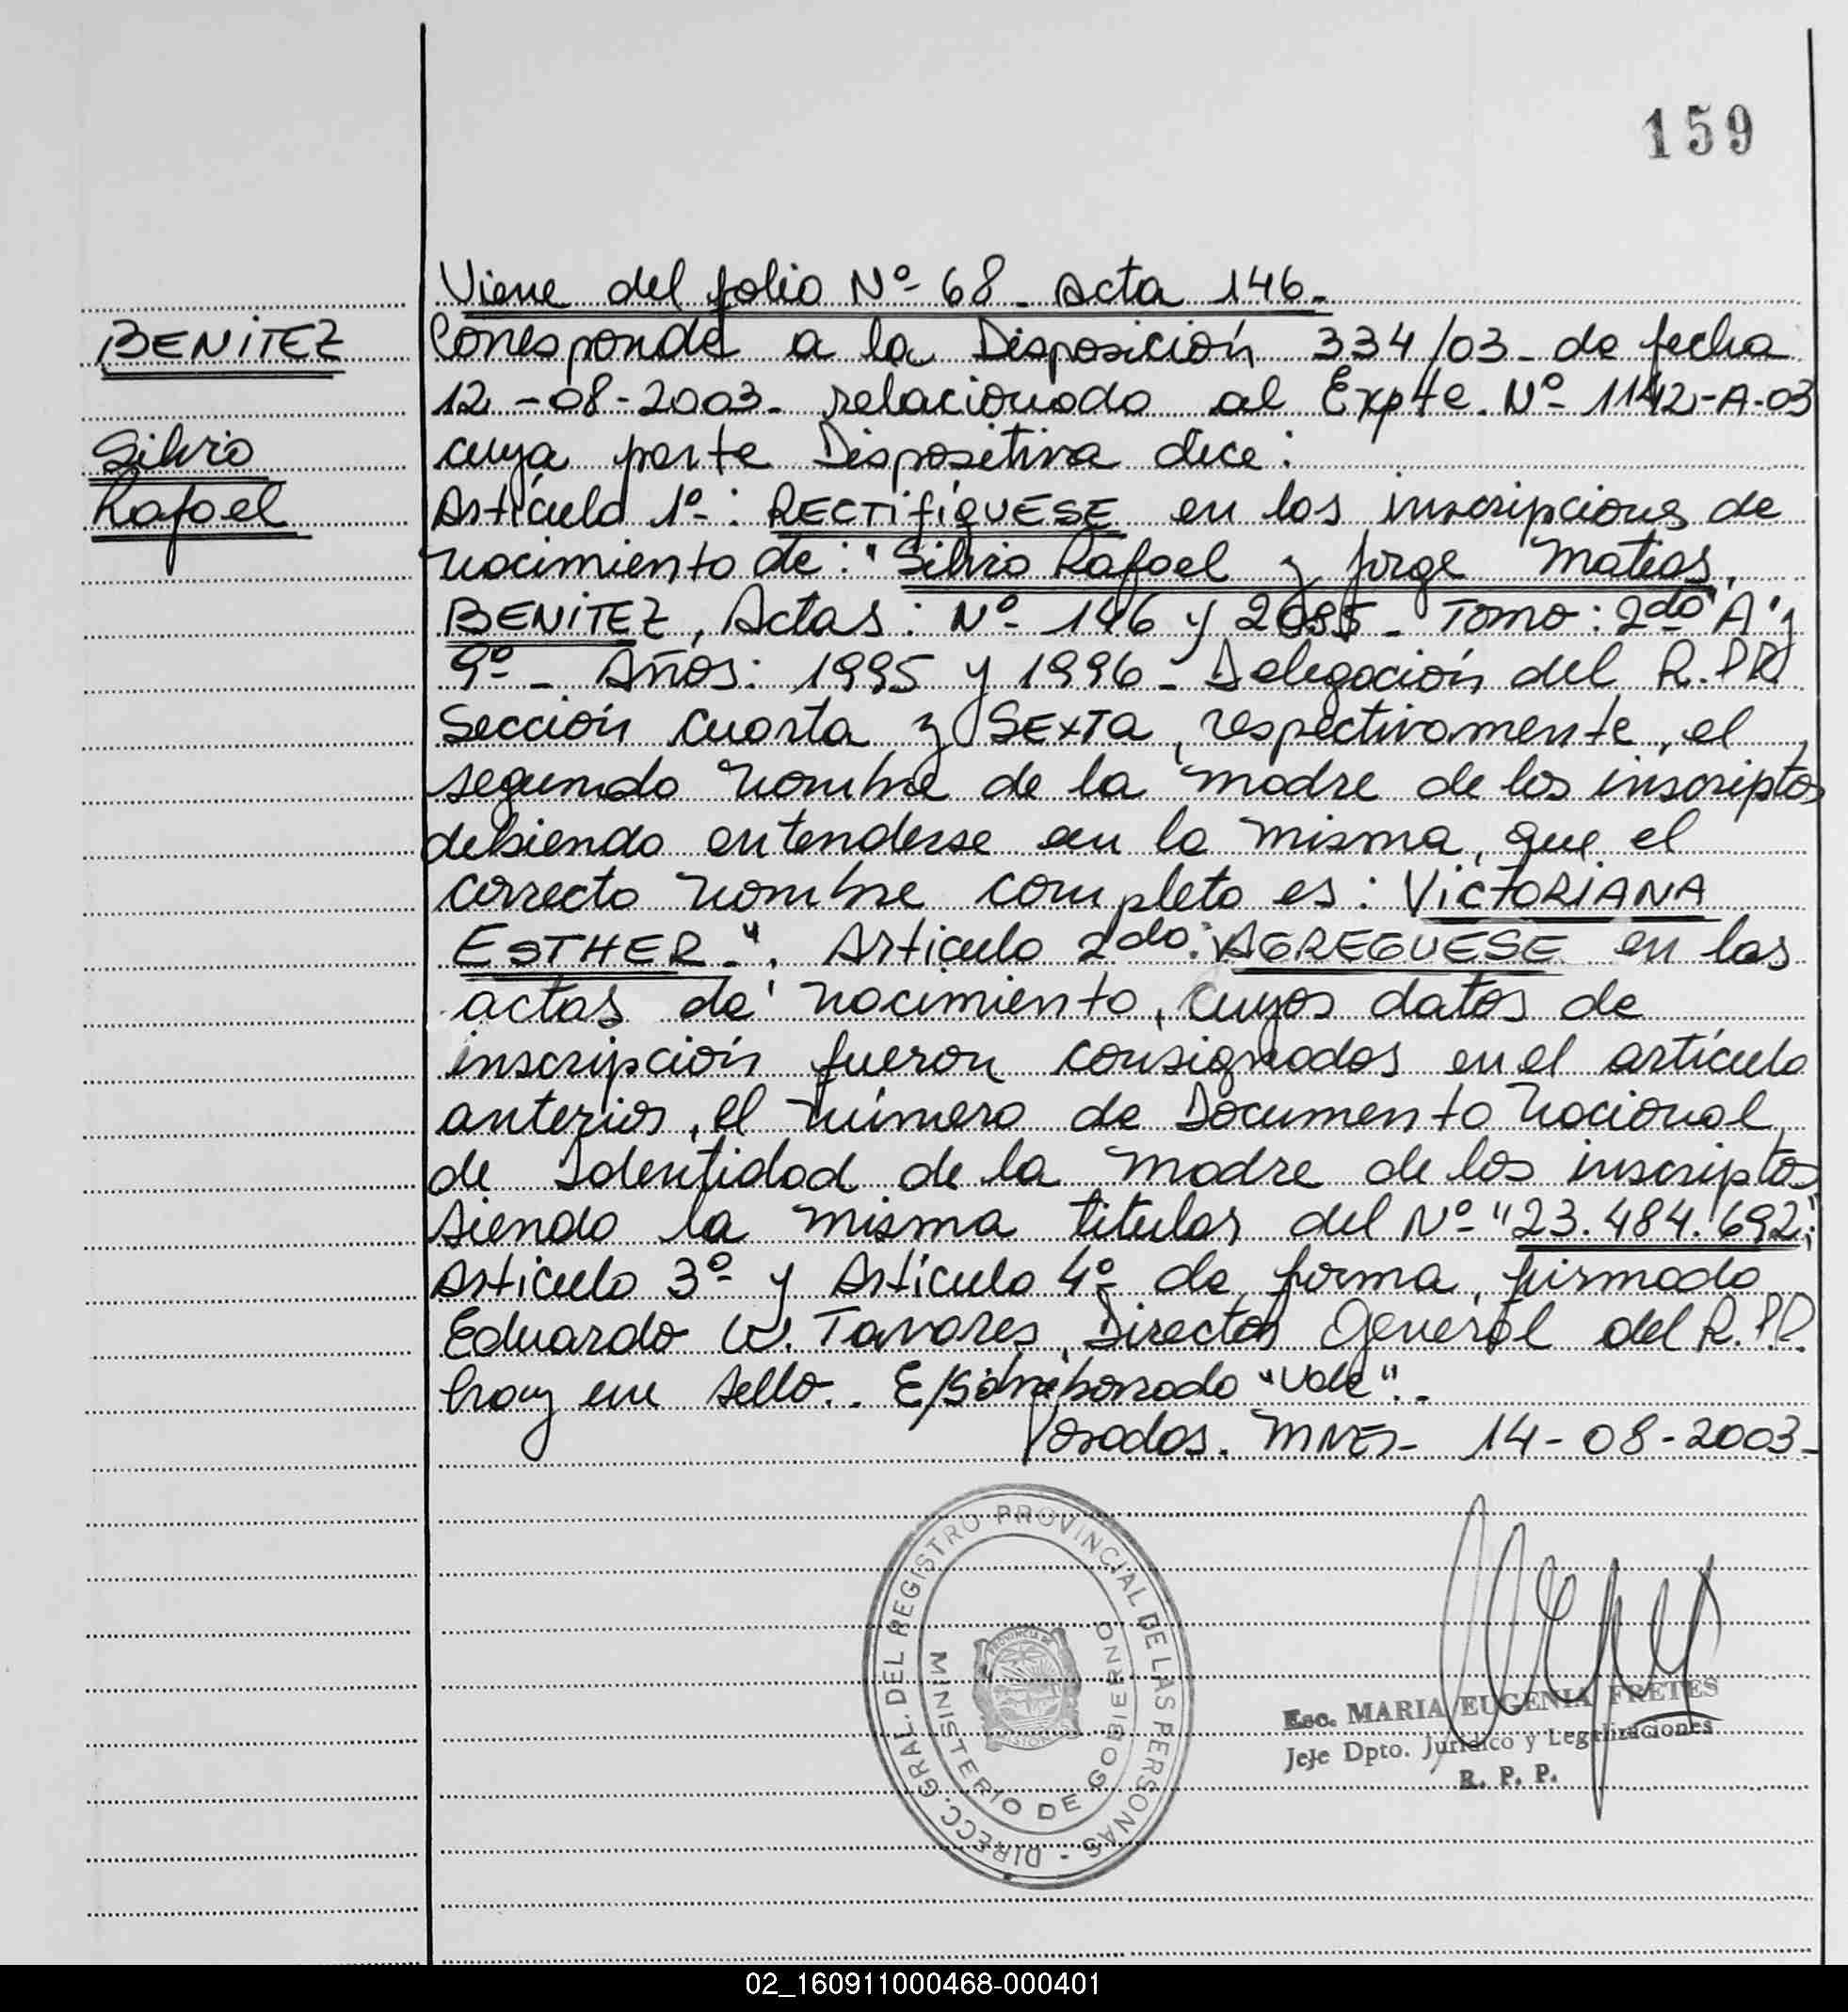 159
Viene del folio Nº 68 - Acta 146.-
BENITEZ
Corresponde a la Disposición 334/03 - de fecha
12-08-2003 - relacionado al Expte. Nº 1142-A-03
Silvio
cuya parte Dispositiva dice:
Rafael
Artículo 1º: RECTIFÍQUESE en las inscripciones de
nacimiento de: "Silvio Rafael y Jorge Matias,
BENITEZ, Actas: Nº 146 y 2085 - Tomo: 2do "A" y
9º - Años: 1995 y 1996 - Delegación del R.P.P.
Sección Cuarta y SEXTA, respectivamente, el
segundo nombre de la madre de los inscriptos
debiendo entenderse en la misma, que el
correcto nombre completo es: VICTORIANA
ESTHER-". Artículo 2do: AGREGUESE en las
actas de nacimiento, cuyos datos de
inscripción fueron consignados en el artículo
anterior, el número de Documento Nacional
de Identidad de la madre de los inscriptos
siendo la misma titular del Nº "23.484.692";
Artículo 3º y Artículo 4º de forma, firmado
Eduardo W. Tavares, Director General del R.P.P.
hay un sello.. E/Sobreborrado "Vale".-
Posadas. MNES- 14-08-2003-
DIRECC. GRAL. DEL REGISTRO PROVINCIAL DE LAS PERSONAS -
MINISTERIO DE GOBIERNO
PROVINCIA DE
MISIONES
Esc. MARIA EUGENIA FRETES
Jefe Dpto. Jurídico y Legalizaciones
R. P. P.
02_160911000468-000401